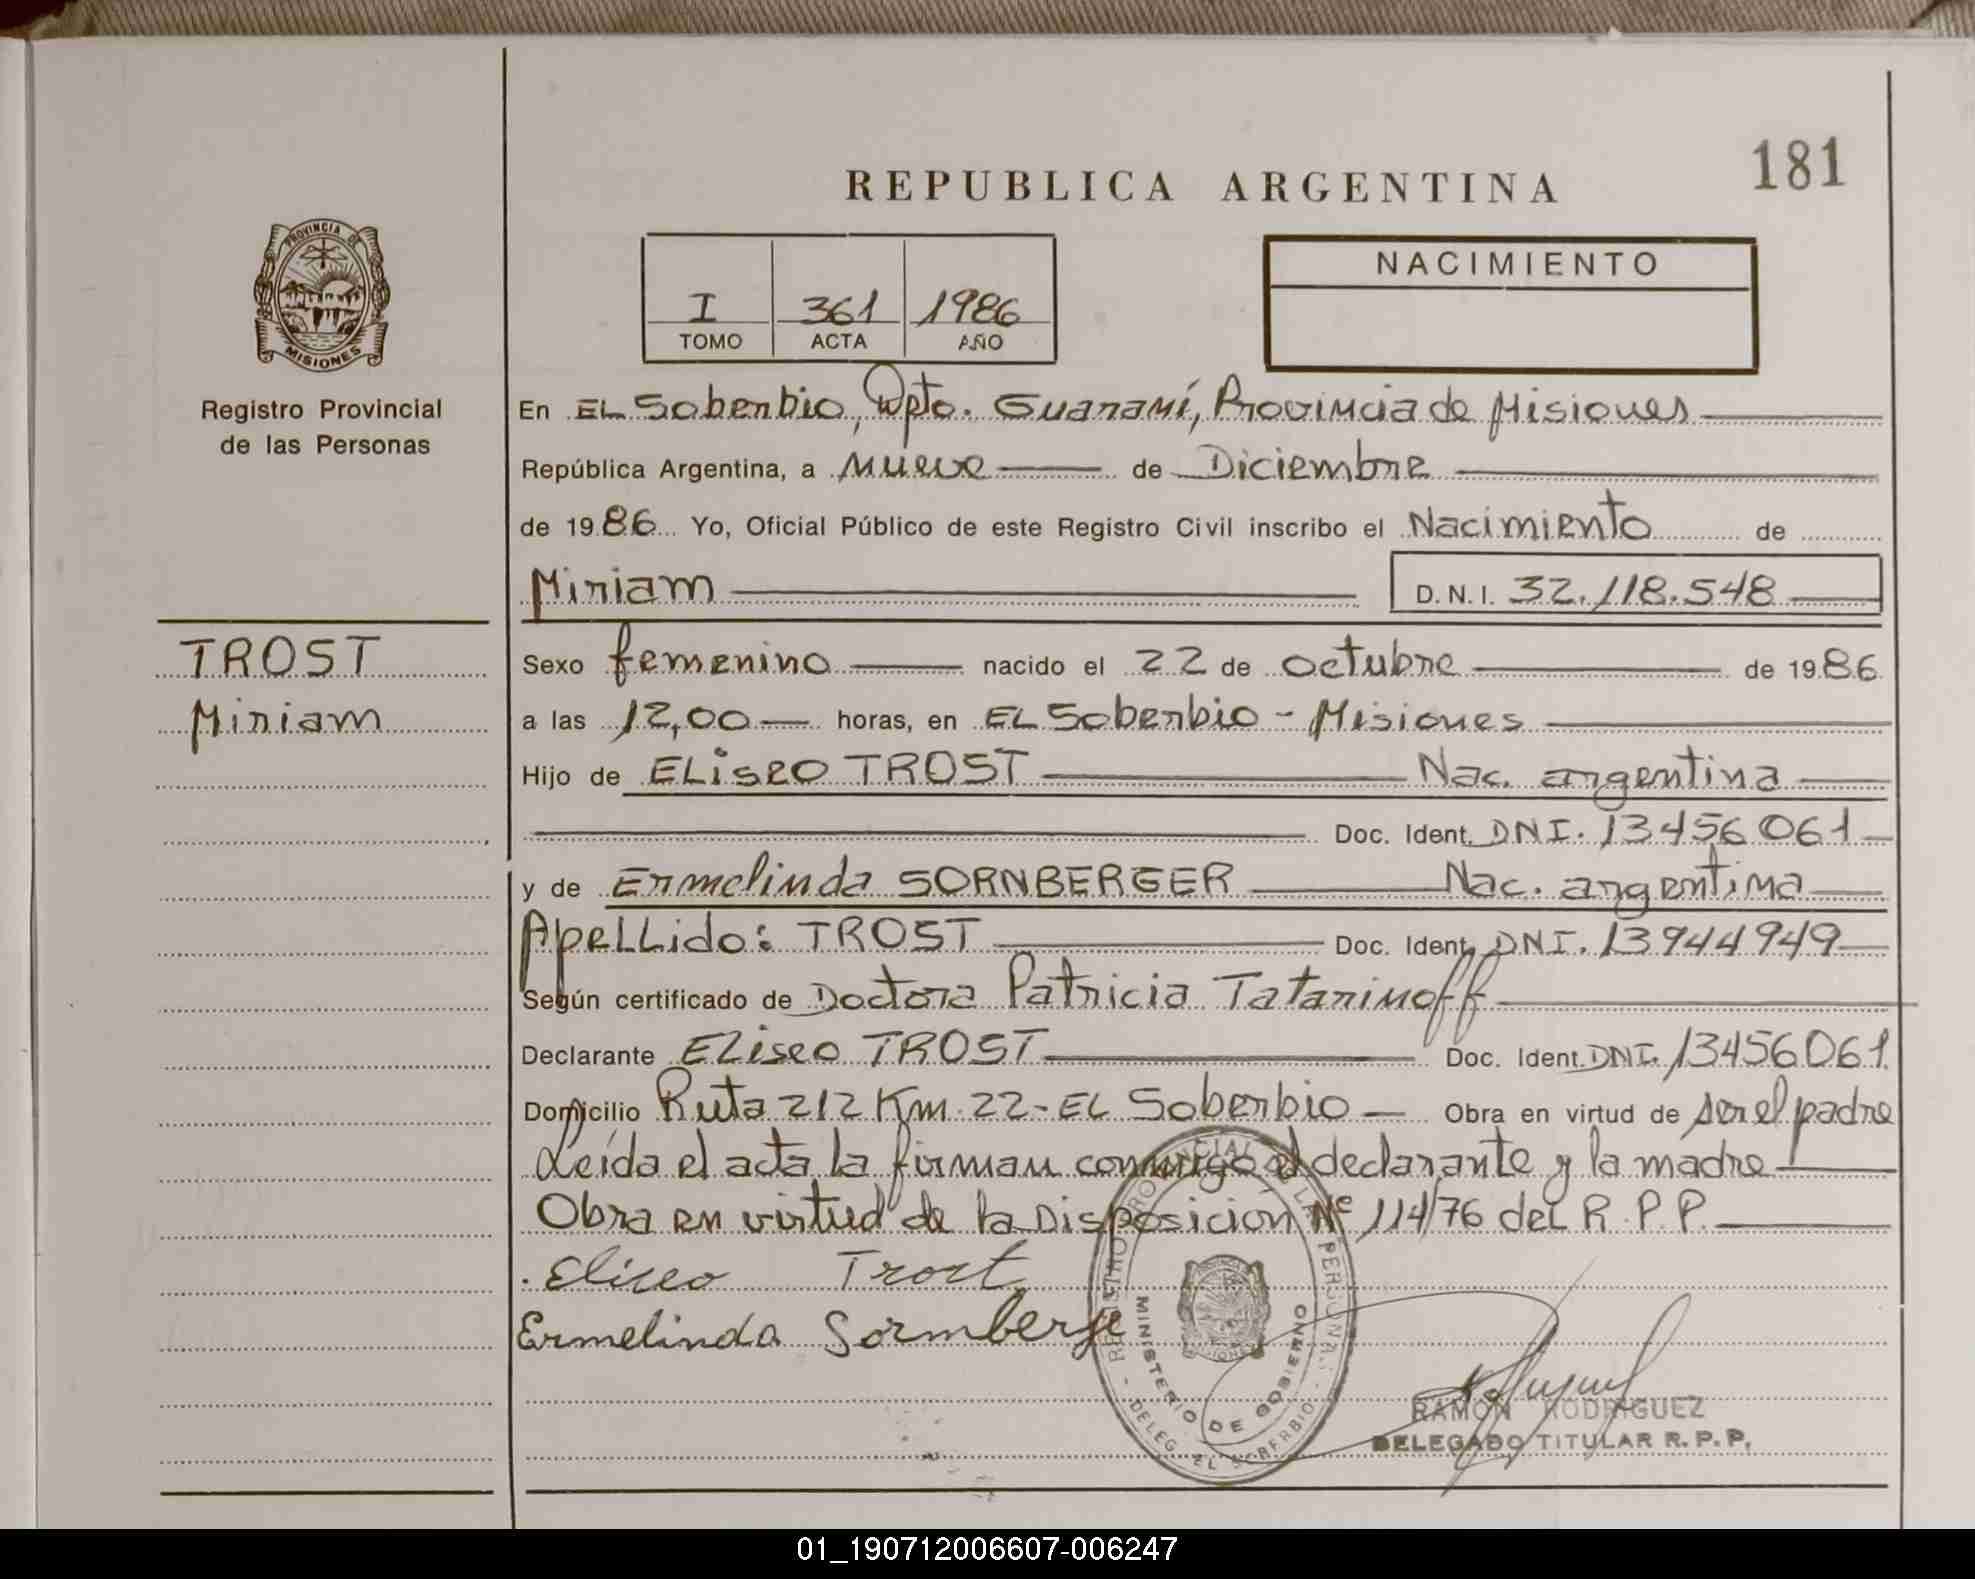 181
REPUBLICA ARGENTINA
PROVINCIA DE
MISIONES
Registro Provincial
de las Personas
I 361 1986
TOMO ACTA AÑO
NACIMIENTO
En EL Soberbio, Dpto. Guaraní, Provincia de Misiones
República Argentina, a Nueve de Diciembre
de 1986 Yo, Oficial Público de este Registro Civil inscribo el Nacimiento de
Miriam D.N.I. 32.118.548
TROST
Miriam
Sexo femenino nacido el 22 de octubre de 1986
a las 12,00 horas, en EL Soberbio - Misiones
Hijo de ELiseo TROST Nac. argentina
Doc. Ident. DNI. 13456061
y de Ermelinda SORNBERGER Nac. argentina
ApeLLido: TROST Doc. Ident. DNI. 13944949
Según certificado de Doctora Patricia Tatarinoff
Declarante ELiseo TROST Doc. Ident. DNI. 13456061
Domicilio Ruta 212 Km. 22 - EL Soberbio Obra en virtud de ser el padre
Leída el acta la firman conmigo el declarante y la madre
Obra en virtud de la Disposición Nº 114/76 deL R.P.P.
Eliseo Trost
Ermelinda Sormberge
REGISTRO PROVINCIAL DE LAS PERSONAS
MINISTERIO DE GOBIERNO
DELEG. EL SOBERBIO
RAMON RODRIGUEZ
DELEGADO TITULAR R.P.P.
01_190712006607-006247